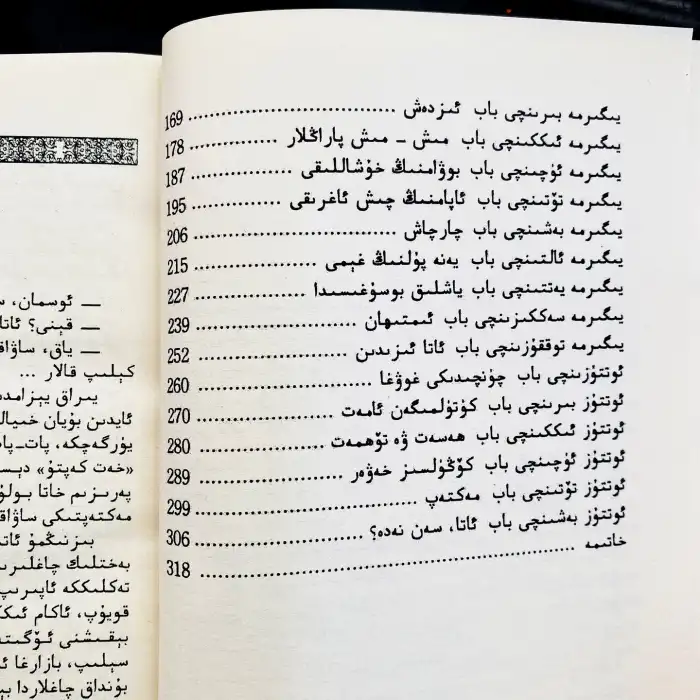 يىگىرمە بىرىنچى باب ئىزدەش ........ 169
يىگىرمە ئىككىنچى باب مىش - مىش پاراڭلار ........ 178
يىگىرمە ئۈچىنچى باب بوۋامنىڭ خۇشاللىقى ........ 187
يىگىرمە تۆتىنچى باب ئاپامنىڭ چىش ئاغرىقى ........ 195
يىگىرمە بەشىنچى باب چارچاش ........ 206
يىگىرمە ئالتىنچى باب يەنە پۇلنىڭ غېمى ........ 215
يىگىرمە يەتتىنچى باب ياشلىق بوسۇغىسىدا ........ 227
يىگىرمە سەككىزىنچى باب ئىمتىھان ........ 239
يىگىرمە توققۇزىنچى باب ئاتا ئىزىدىن ........ 252
ئوتتۇزىنچى باب چۈنچىدىكى غوۋغا ........ 260
ئوتتۇز بىرىنچى باب كۈتۈلمىگەن ئامەت ........ 270
ئوتتۇز ئىككىنچى باب ھەسەت ۋە تۆھمەت ........ 280
ئوتتۇز ئۈچىنچى باب كۆڭۈلسىز خەۋەر ........ 289
ئوتتۇز تۆتىنچى باب مەكتەپ ........ 299
ئوتتۇز بەشىنچى باب ئاتا، سەن نەدە؟ ........ 306
خاتىمە ........ 318
— ئوسمان،
— قېنى؟
— ياق،
كېلىپ قالار ...
يىراق
ئايدىن بۇيان
يۈرگەچكە، پات-پات
«خەت كەپتۇ»
پەرىزىم خاتا
مەكتەپتىكى
بىزنىڭمۇ
بەختلىك
تەكلىككە
قويۇپ، ئاكام
بېقىشنى
سېلىپ، بازارغا
بۇنداق چاغلاردا